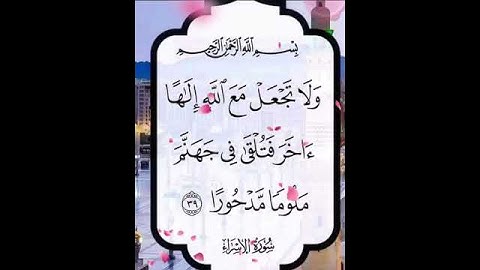 بِسْمِ ٱللَّهِ ٱلرَّحْمَٰنِ ٱلرَّحِيمِ
وَلَا تَجْعَلْ مَعَ ٱللَّهِ إِلَٰهًا
ءَاخَرَ فَتُلْقَىٰ فِى جَهَنَّمَ
مَلُومًا مَّدْحُورًا ٣٩
سُورَةُ الإِسْرَاءِ